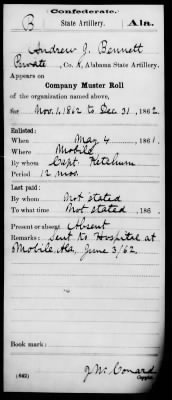 Confederate.
B State Artillery. Ala.
Andrew J. Bennett
Private, Co. K, Alabama State Artillery.
Appears on
Company Muster Roll
of the organization named above,
for Nov. 1, 1862 to Dec 31, 1862.
Enlisted:
When May 4, 1861.
Where Mobile
By whom Capt. Ketchum
Period 12 mos
Last paid:
By whom Not stated
To what time Not stated, 186 .
Present or absent Absent
Remarks: Sent to Hospital at
Mobile Ala, June 3/62.
Book mark:
J McConard
(642) Copyist.